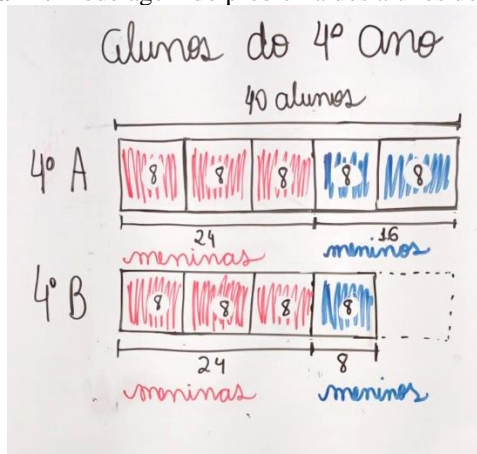 Alunos do 4º ano
40 alunos
4º A
8 8 8 8 8
24 16
meninas meninos
4º B
8 8 8 8
24 8
meninas meninos